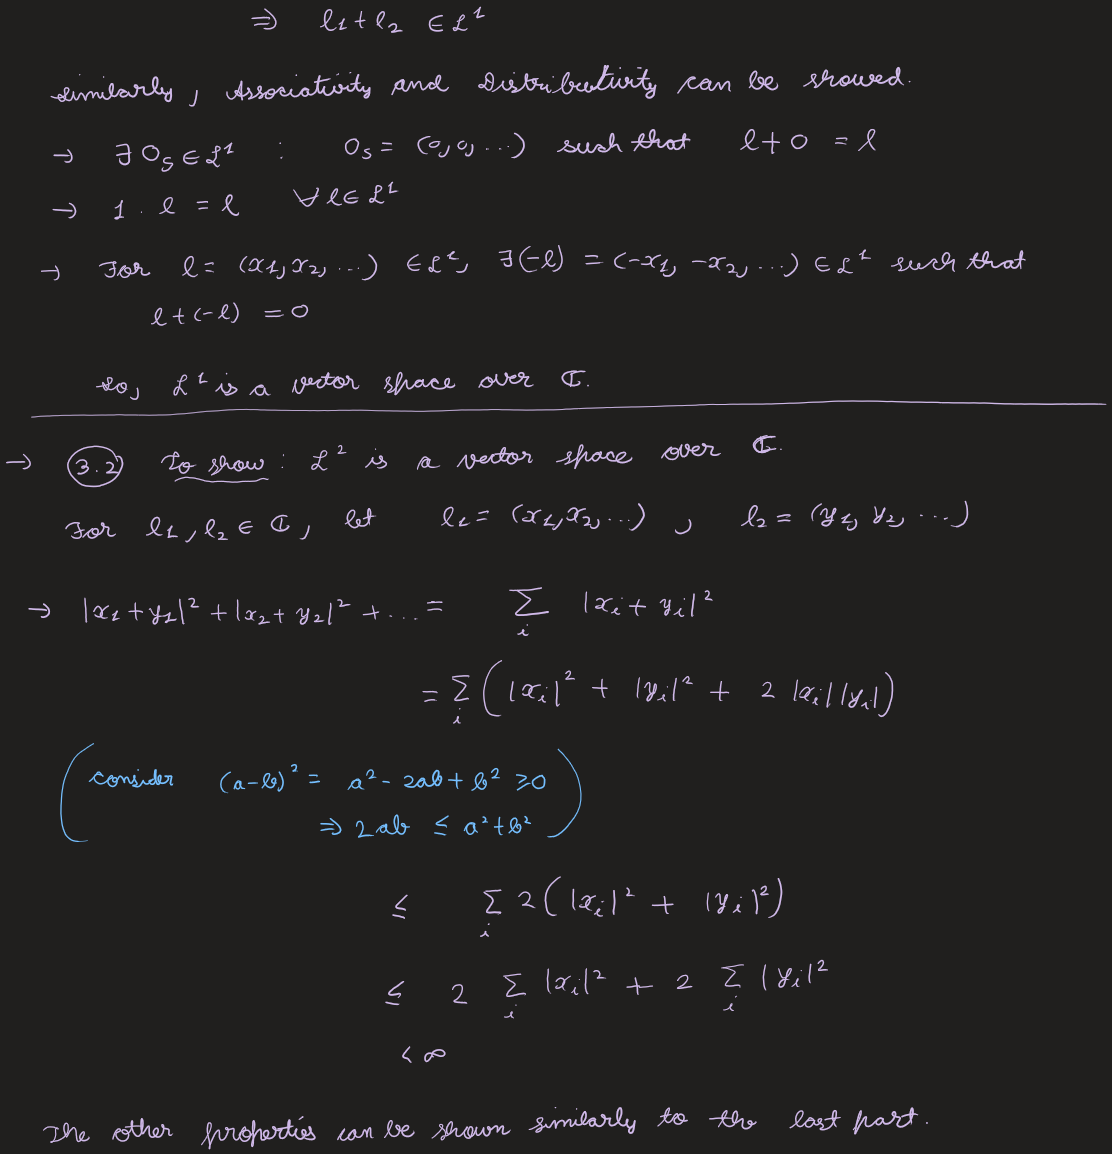 ⇒ l₁+l₂ ∈ ℒ¹
similarly, Associativity and Distributivity can be showed.
→ ∃ 0ₛ ∈ ℒ¹ : 0ₛ = (0,0,...) such that l+0 = l
→ 1 . l = l ∀ l ∈ ℒ¹
→ For l = (x₁,x₂, ...) ∈ ℒ¹, ∃(-l) = (-x₁, -x₂, ...) ∈ ℒ¹ such that
l+(-l) = 0
so, ℒ¹ is a vector space over ℂ.
→ (3.2) To show : ℒ² is a vector space over ℂ.
For l₁, l₂ ∈ ℂ, let l₁ = (x₁,x₂,...) , l₂ = (y₁, y₂, ...)
→ |x₁+y₁|² + |x₂+y₂|² + ... = Σᵢ |xᵢ+yᵢ|²
= Σᵢ (|xᵢ|² + |yᵢ|² + 2 |xᵢ| |yᵢ|)
(consider (a-b)² = a² - 2ab + b² ≥ 0
⇒ 2ab ≤ a²+b²)
≤ Σᵢ 2(|xᵢ|² + |yᵢ|²)
≤ 2 Σᵢ |xᵢ|² + 2 Σᵢ |yᵢ|²
< ∞
The other properties can be shown similarly to the last part.